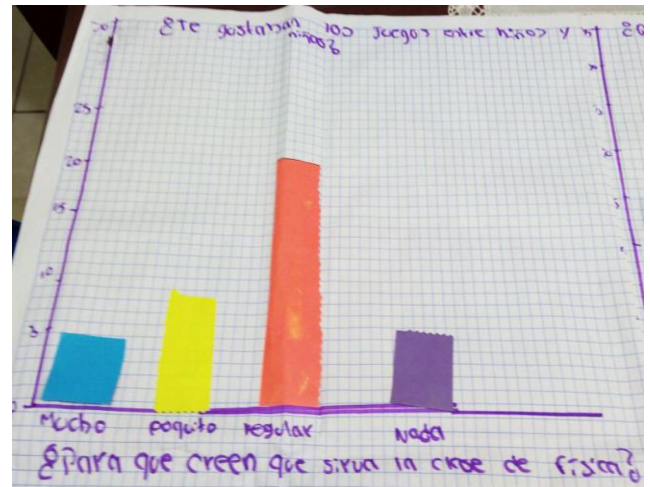 ¿Te gostaban los juegos entre niños y
niñas?
30
25
20
15
10
5
0
Mucho poquito regular Nada
¿Para que creen que sirva la clase de física?